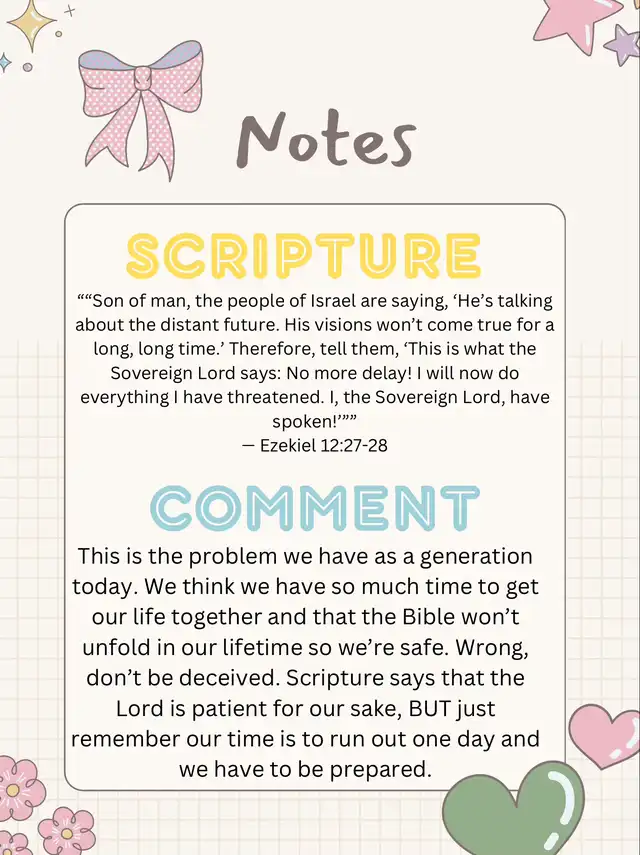 Notes
SCRIPTURE
““Son of man, the people of Israel are saying, ‘He’s talking
about the distant future. His visions won’t come true for a
long, long time.’ Therefore, tell them, ‘This is what the
Sovereign Lord says: No more delay! I will now do
everything I have threatened. I, the Sovereign Lord, have
spoken!’””
— Ezekiel 12:27-28
COMMENT
This is the problem we have as a generation
today. We think we have so much time to get
our life together and that the Bible won’t
unfold in our lifetime so we’re safe. Wrong,
don’t be deceived. Scripture says that the
Lord is patient for our sake, BUT just
remember our time is to run out one day and
we have to be prepared.